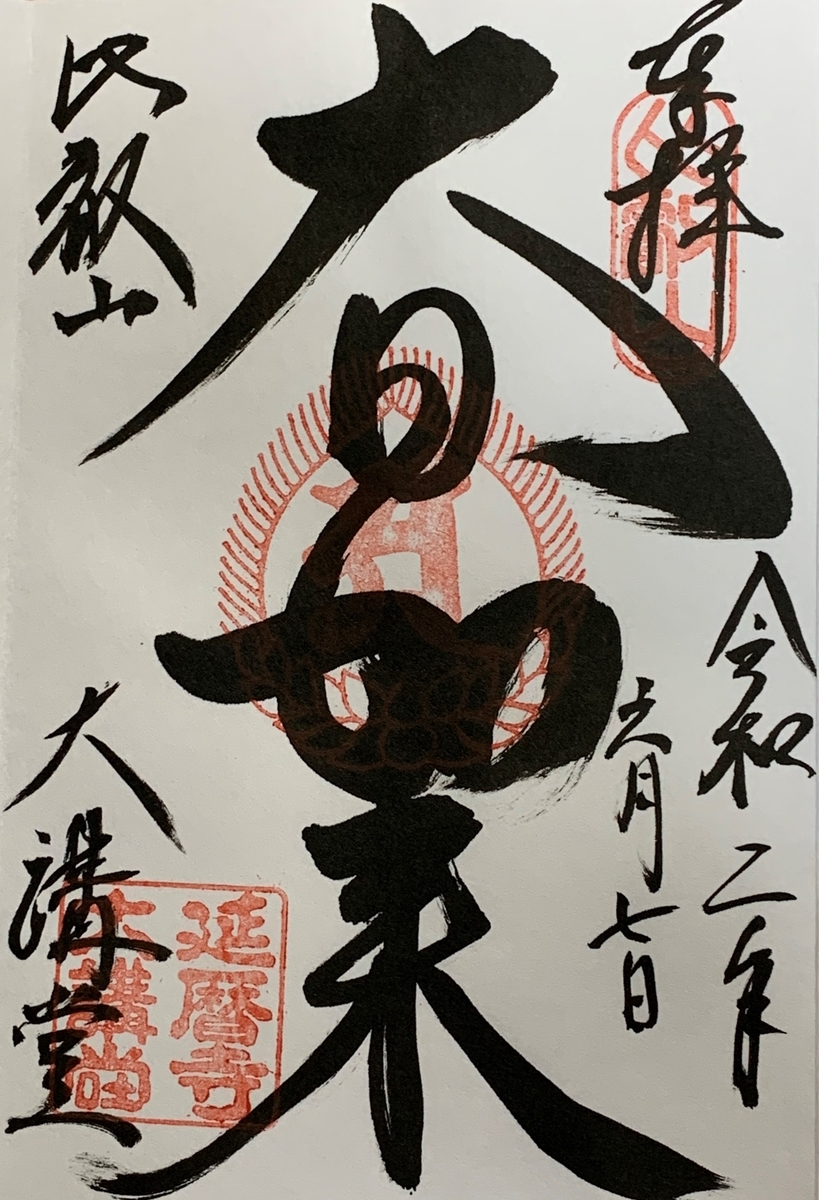 奉拝
令和二年
六月七日
大日如来
比叡山
大講堂
延暦寺
大講堂